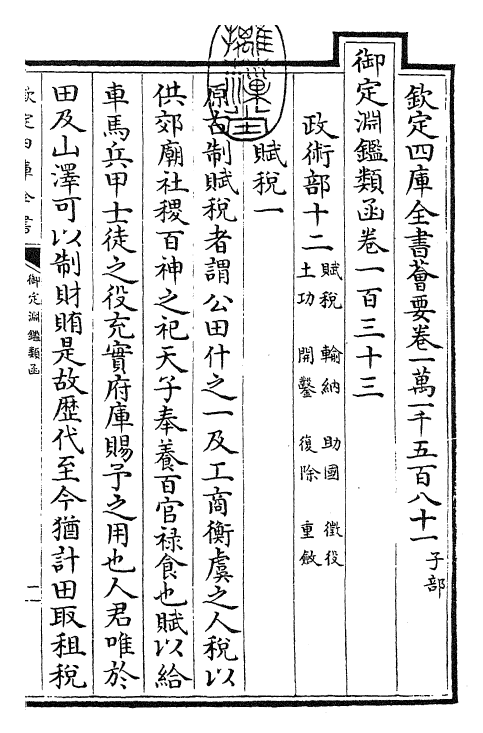 欽定四庫全書薈要卷一萬一千五百八十一 子部
御定淵鑑類函卷一百三十三
政術部十二 賦稅 輸納 助國 徵役
土功 開鑿 復除 重斂
賦稅一
原古制賦稅者謂公田什之一及工商衡虞之人稅以
供郊廟社稷百神之祀天子奉養百官禄食也賦以給
車馬兵甲士徒之役充實府庫賜予之用也人君唯於
田及山澤可以制財賄是故歴代至今猶計田取租稅
欽定四庫全書
御定淵鑑類函
一